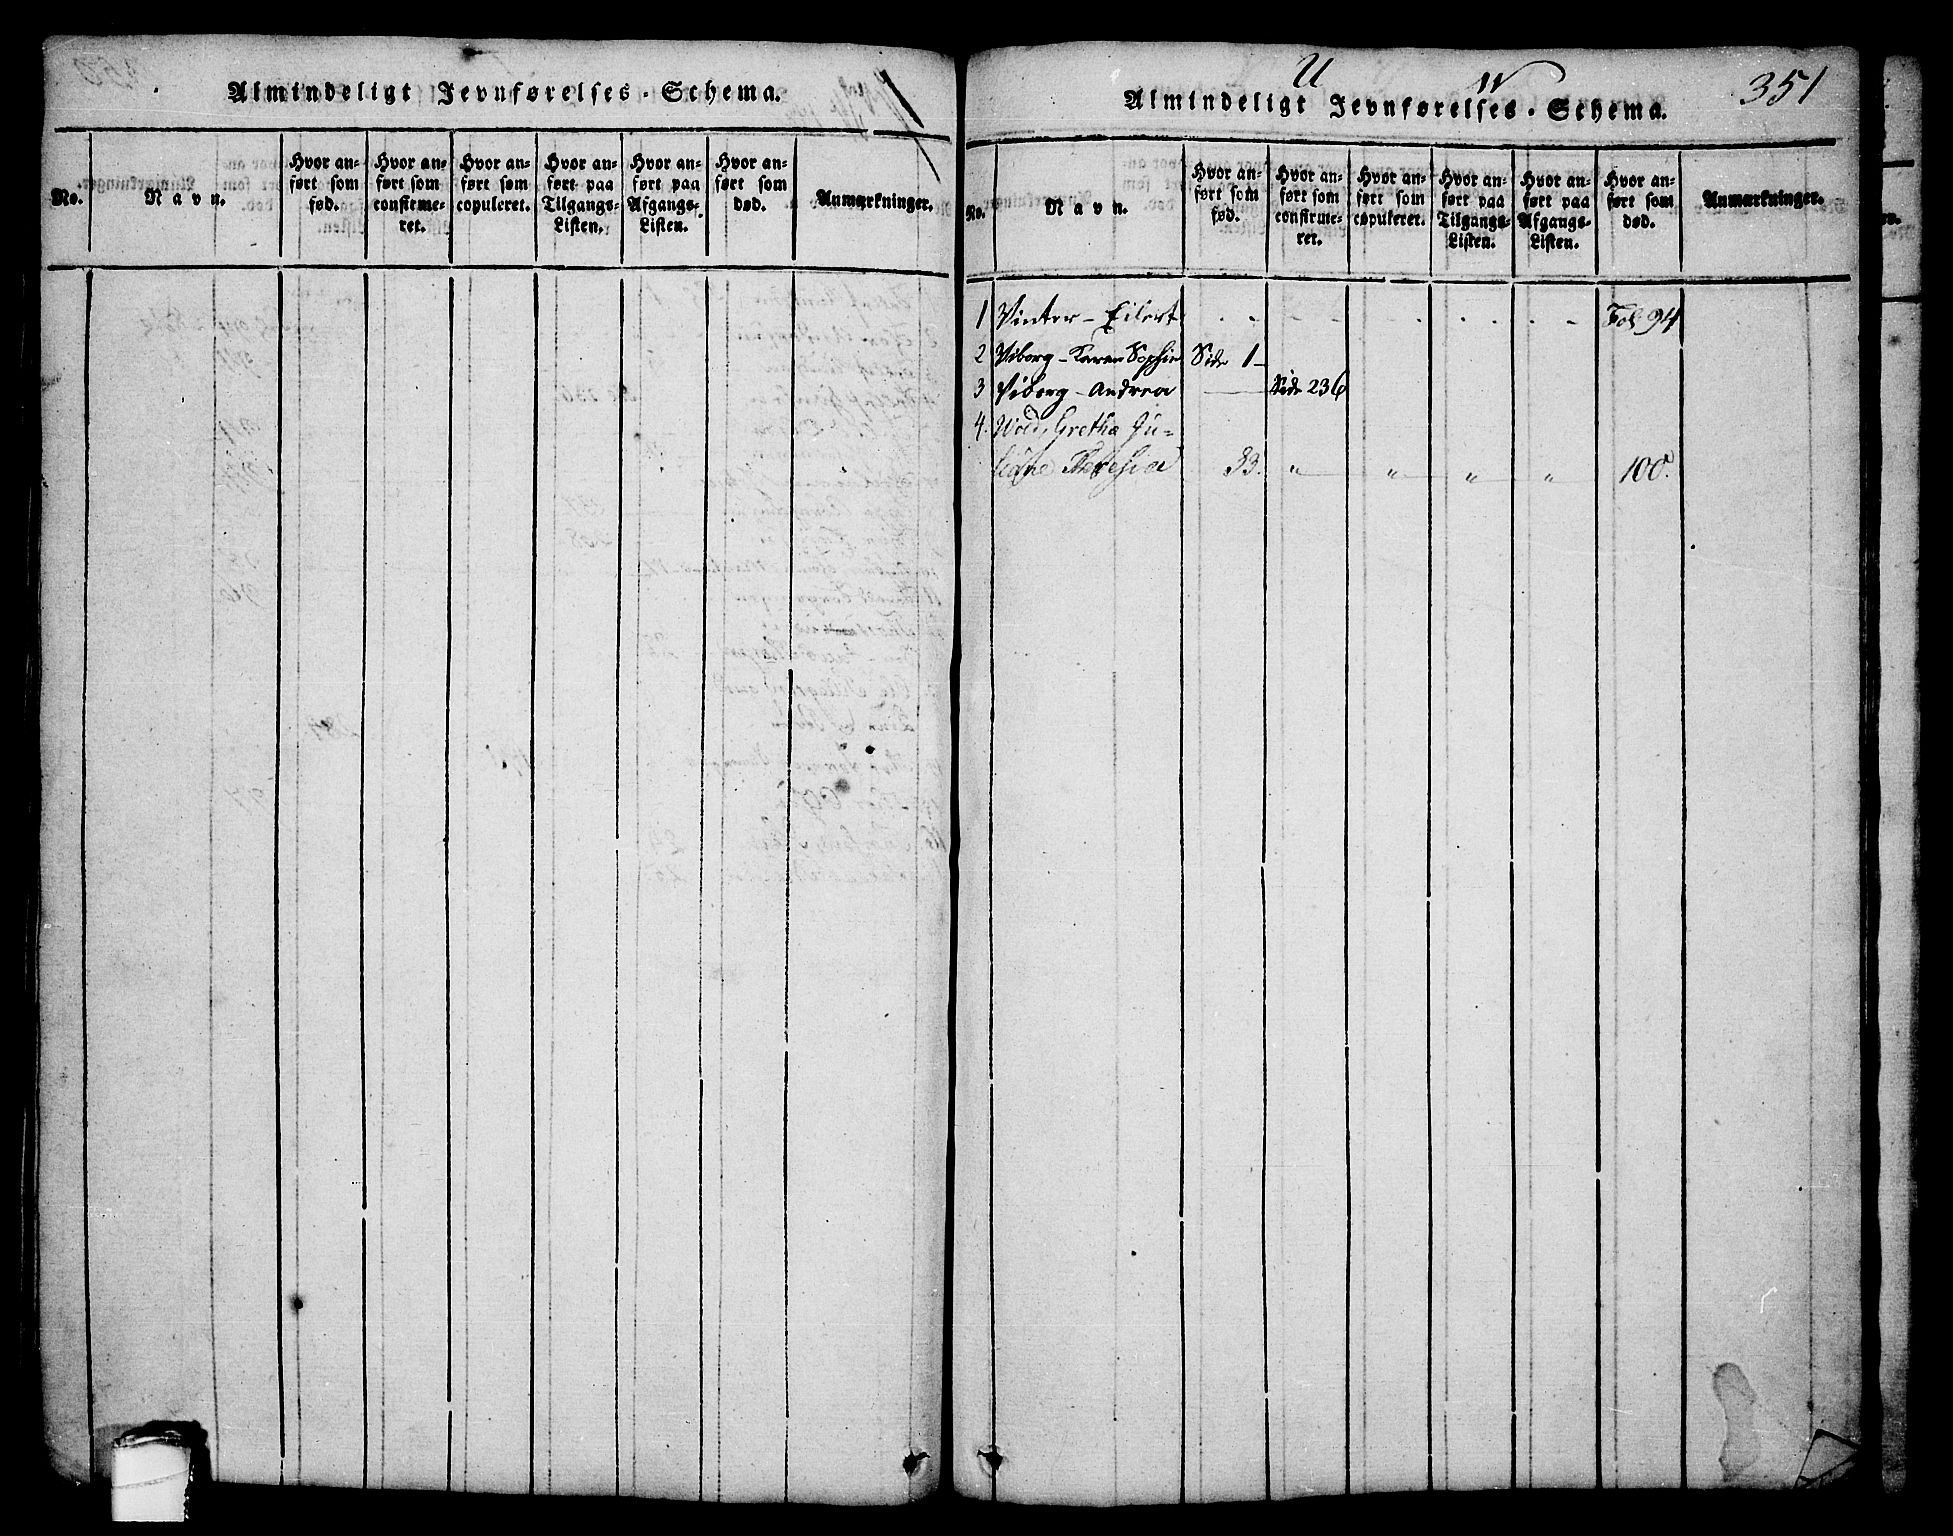 Almindeligt Jevnførelses-Schema.
No.
Navn.
Hvor an-
ført som
fød.
Hvor an-
ført som
confirme-
ret.
Hvor an-
ført som
copuleret.
Hvor an-
ført paa
Tilgangs-
Listen.
Hvor an-
ført paa
Afgangs-
Listen.
Hvor an-
ført som
død.
Anmærkninger.
U W 351
Almindeligt Jevnførelses-Schema.
No.
Navn.
Hvor an-
ført som
fød.
Hvor an-
ført som
confirme-
ret.
Hvor an-
ført som
copuleret.
Hvor an-
ført paa
Tilgangs-
Listen.
Hvor an-
ført paa
Afgangs-
Listen.
Hvor an-
ført som
død.
Anmærkninger.
1 Vinter - Eilert - - - - - - - - Fol 94
2 Viborg - Karen Sophie Side 1 -
3 Viborg - Andrea — Side 236
4. Gretha Ju-
liane Theresia 33. " " " " 100.